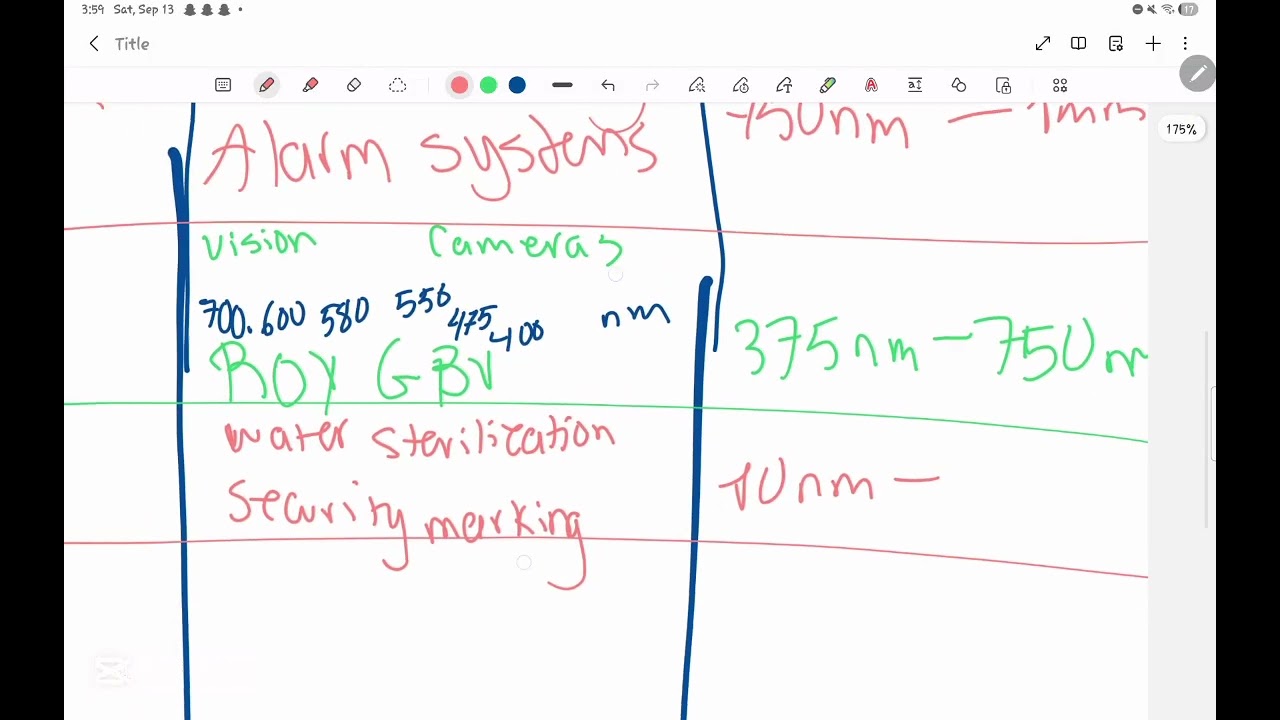 3:59 Sat, Sep 13
17
Title
175%
Alarm systems
750nm — 1mm
vision cameras
700. 600 580 550 475 400 nm
ROY GBV
375nm - 750nm
water sterilization
security marking
10nm —